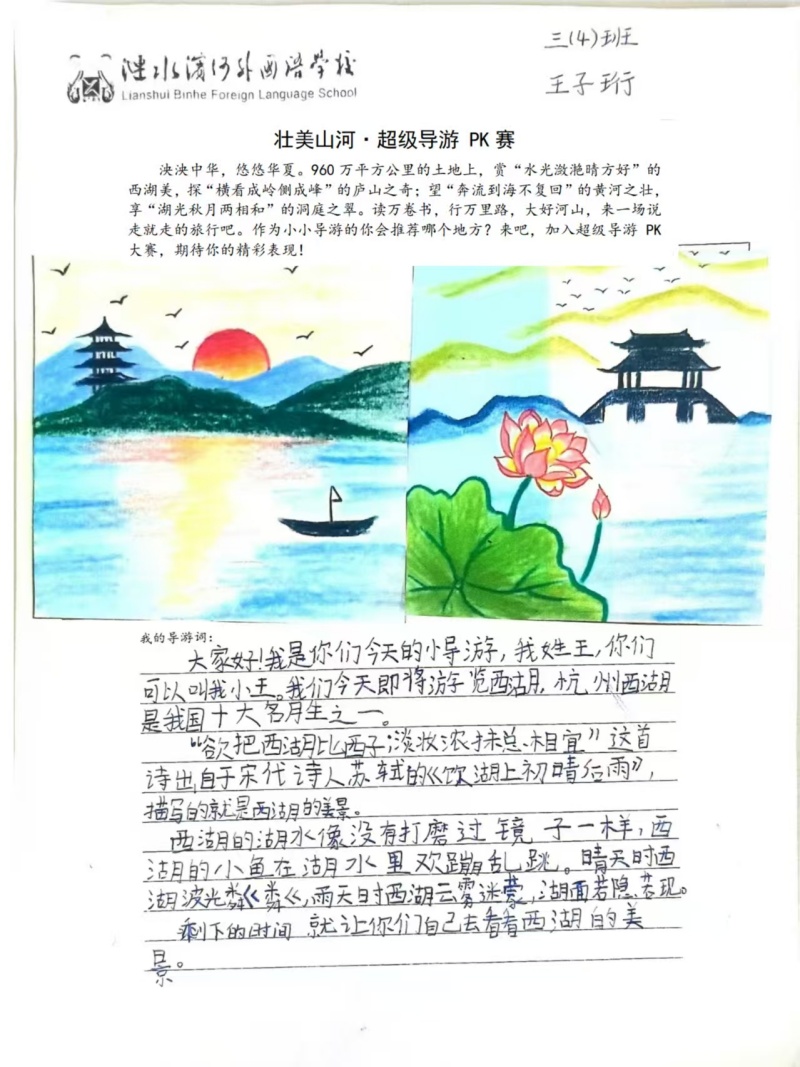 三(4)班
涟水滨河外国语学校
Lianshui Binhe Foreign Language School
王子珩
壮美山河·超级导游 PK 赛
泱泱中华，悠悠华夏。960 万平方公里的土地上，赏“水光潋滟晴方好”的
西湖美，探“横看成岭侧成峰”的庐山之奇；望“奔流到海不复回”的黄河之壮，
享“湖光秋月两相和”的洞庭之翠。读万卷书，行万里路，大好河山，来一场说
走就走的旅行吧。作为小小导游的你会推荐哪个地方？来吧，加入超级导游 PK
大赛，期待你的精彩表现！
我的导游词：
大家好！我是你们今天的小导游，我姓王，你们
可以叫我小王。我们今天即将游览西湖，杭州西湖
是我国十大名胜之一。
“欲把西湖比西子，淡妆浓抹总相宜》这首
诗出自于宋代诗人苏轼的《饮湖上初晴后雨》，
描写的就是西湖的美景。
西湖的湖水像没有打磨过镜子一样，西
湖的小鱼在湖水里欢蹦乱跳。晴天时西
湖波光粼粼，雨天时西湖云雾迷蒙，湖面若隐若现。
剩下的时间就让你们自己去看看西湖的美
景。